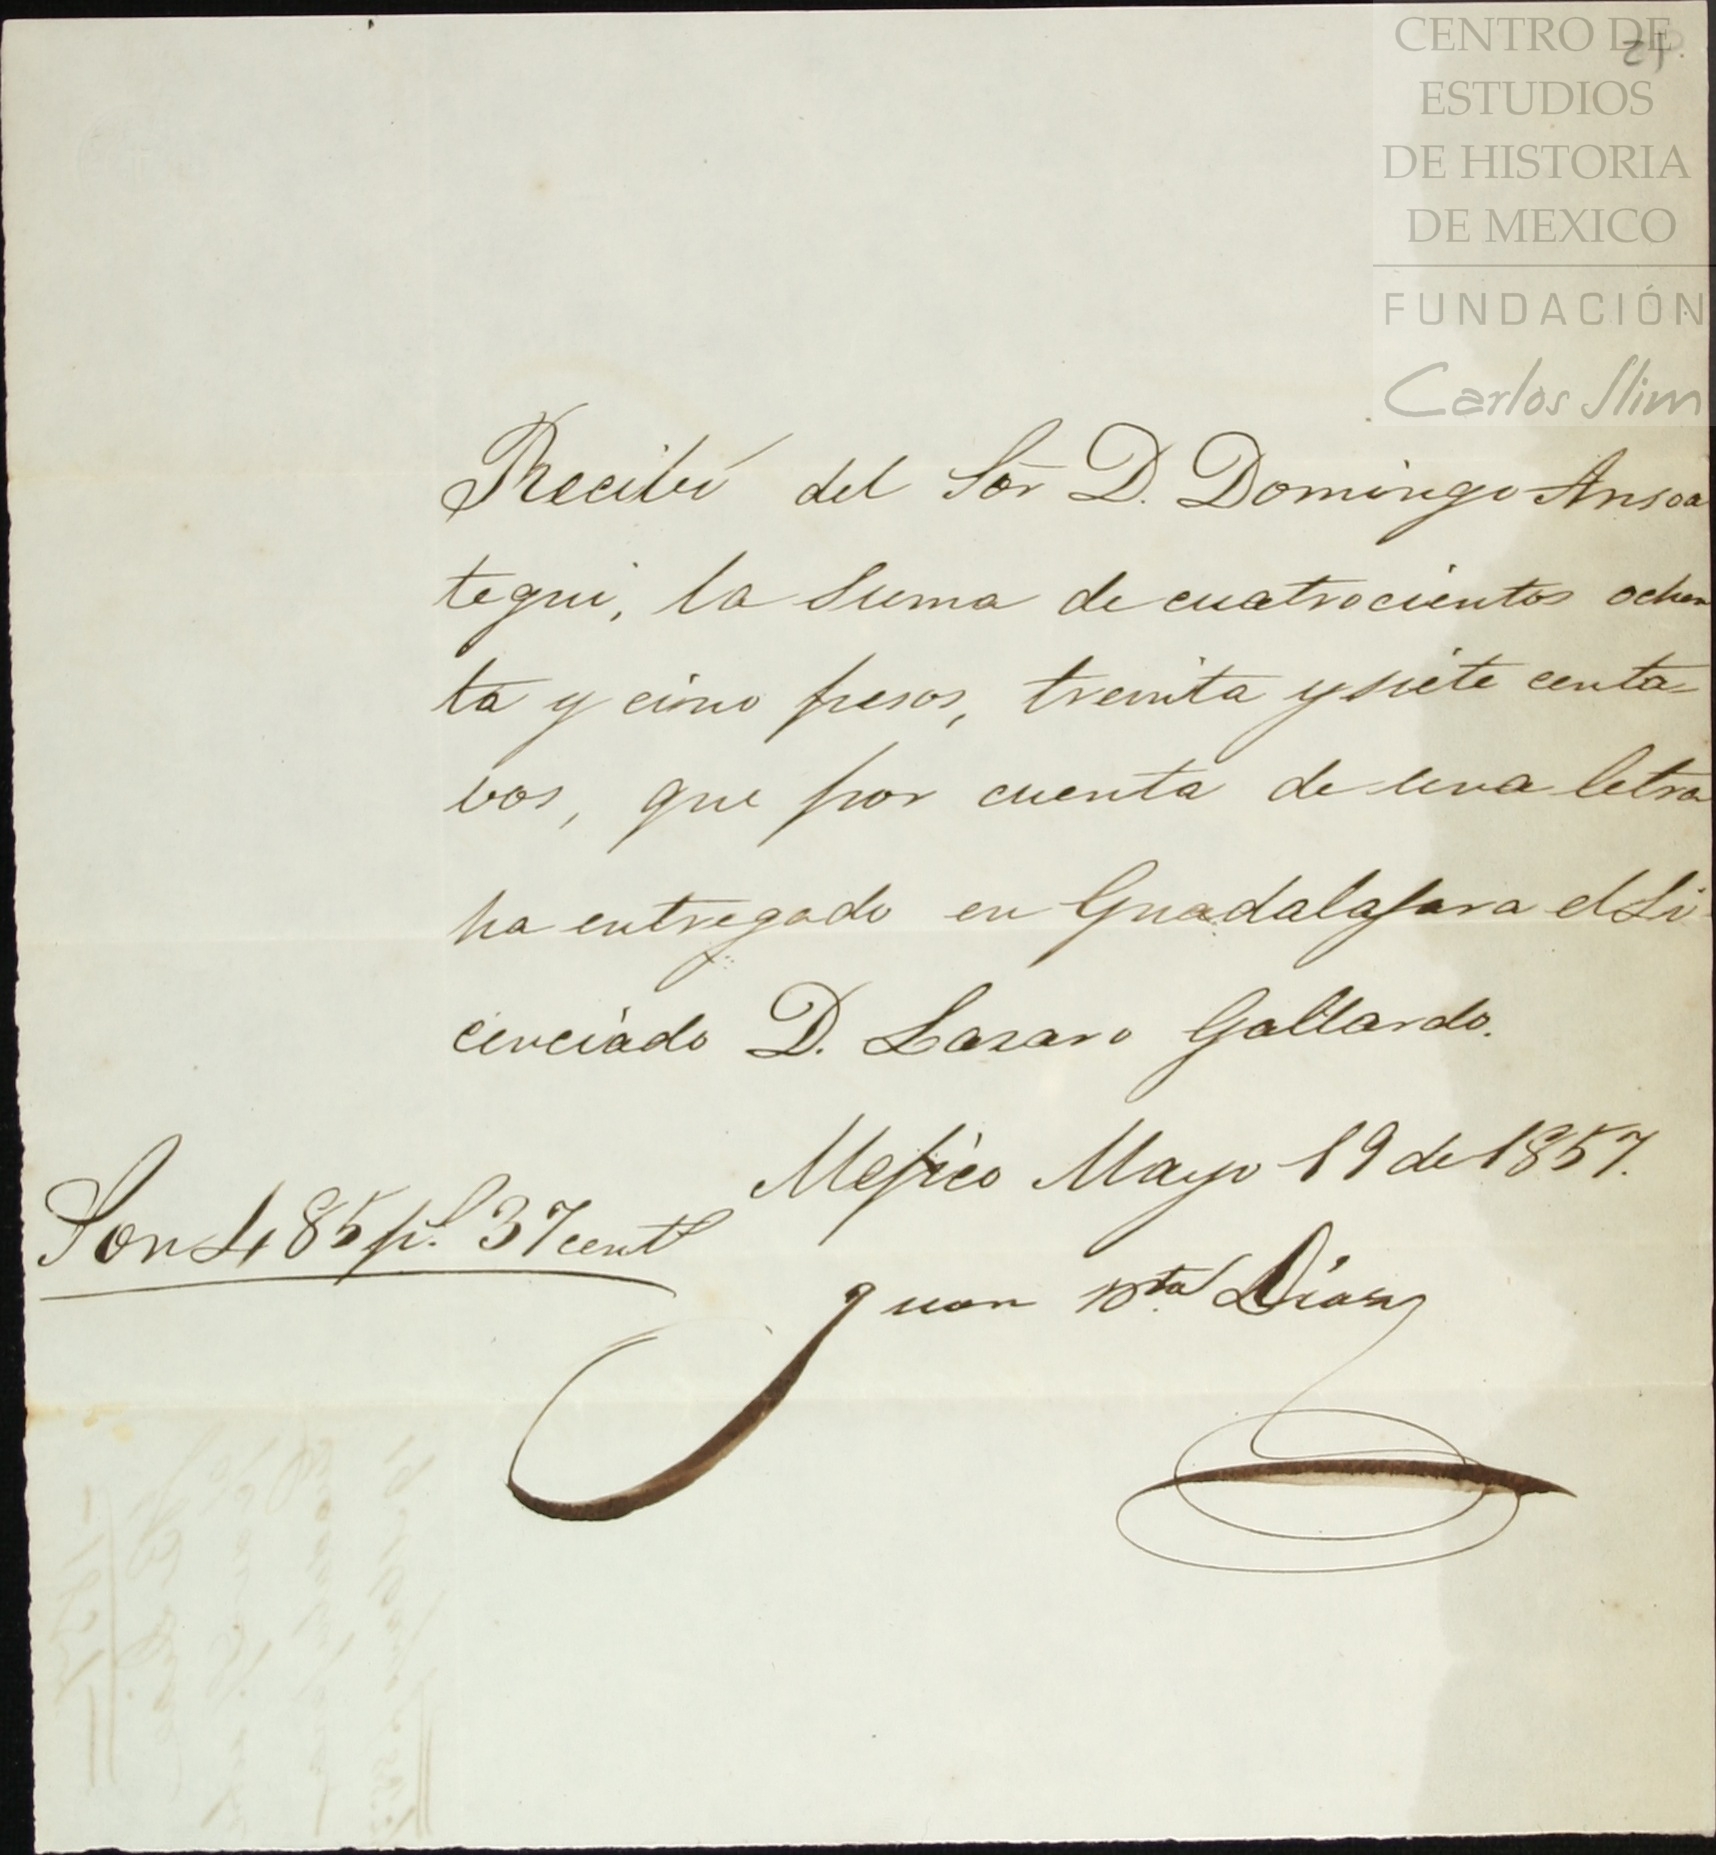 CENTRO DE
ESTUDIOS
DE HISTORIA
DE MEXICO
FUNDACIÓN
Carlos Slim
Recibí del Sōr D. Domingo Ansoa
tegui, la Suma de cuatrocientos ochen
ta y cinco pesos, treinta y siete centa-
vos, que por cuenta de una letra
ha entregado en Guadalajara el Li-
cenciado D. Lazaro Gallardo.
Mejico Mayo 19 de 1857.
Son 485 ps. 37 cents
Juan Bta Diaz